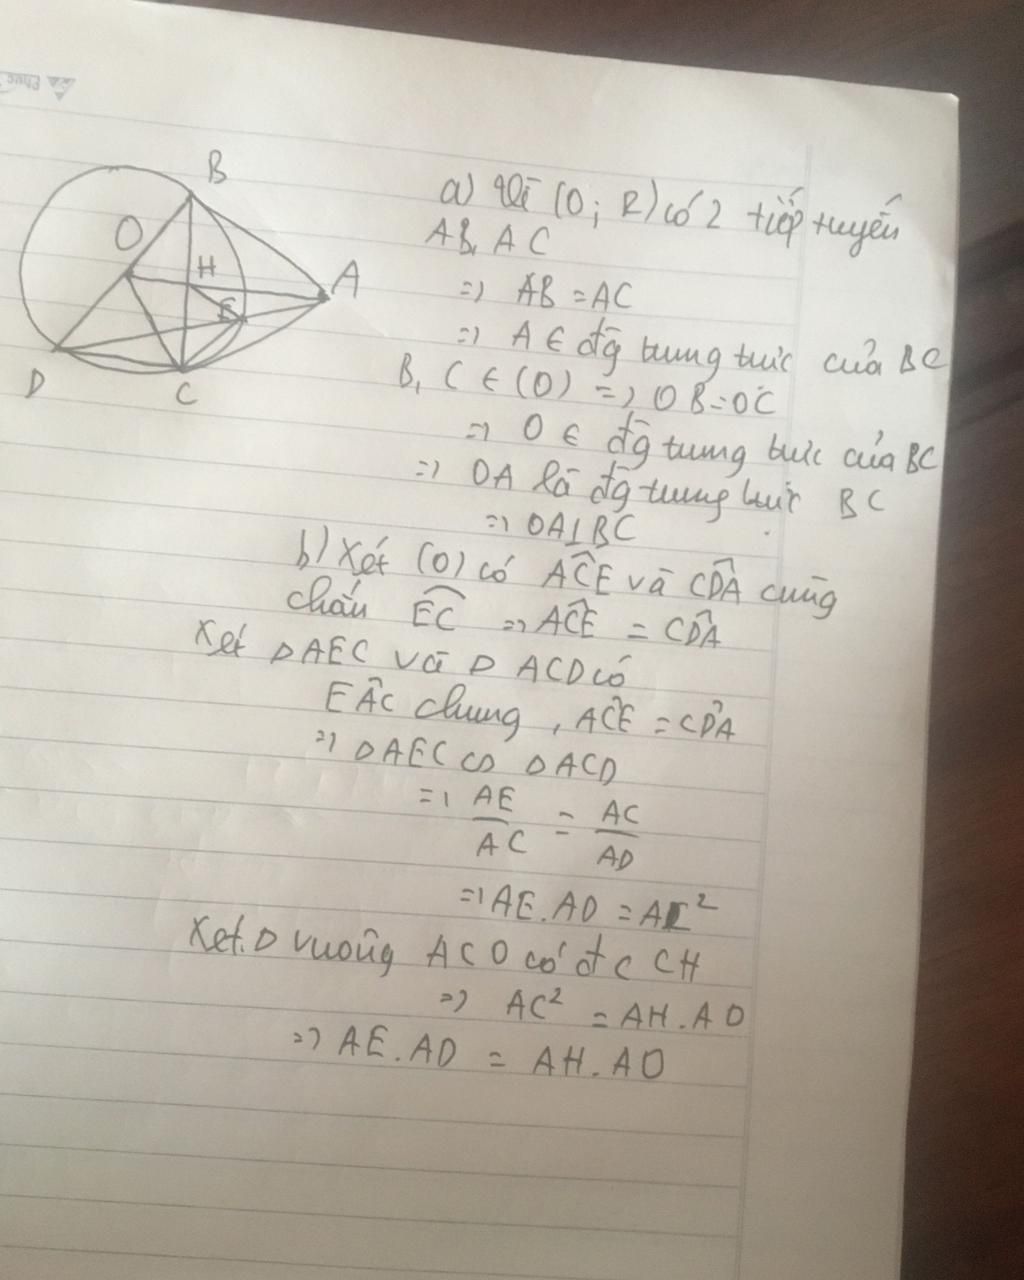 B
O
H
A
E
D
C
a) Vì (O; R) có 2 tiếp tuyến
AB, AC
=> AB = AC
=> A ∈ đg trung trực của BC
B, C ∈ (O) => OB = OC
=> O ∈ đg trung trực của BC
=> OA là đg trung trực BC
=> OA ⊥ BC
b) Xét (O) có ACE^ và CDA^ cùng
chắn EC⌒ => ACE^ = CDA^
Xét Δ AEC và Δ ACD có
EAC^ chung, ACE^ = CDA^
=> Δ AEC ∽ Δ ACD
=> AE/AC = AC/AD
=> AE.AD = AC²
Xét Δ vuông ACO có đc CH
=> AC² = AH.AO
=> AE.AD = AH.AO